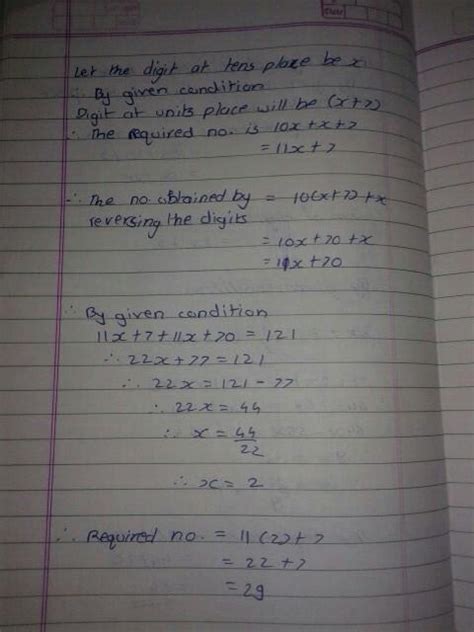 Let the digit at tens place be x.
∴ By given condition
Digit at units place will be (x+7)
∴ The required no. is 10x+x+7
= 11x+7
∴ The no. obtained by = 10(x+7)+x
reversing the digits
= 10x+70+x
= 11x+70
∴ By given condition
11x+7+11x+70 = 121
∴ 22x+77 = 121
∴ 22x = 121-77
∴ 22x = 44
∴ x = 44
22
∴ x = 2
∴ Required no. = 11(2)+7
= 22+7
= 29